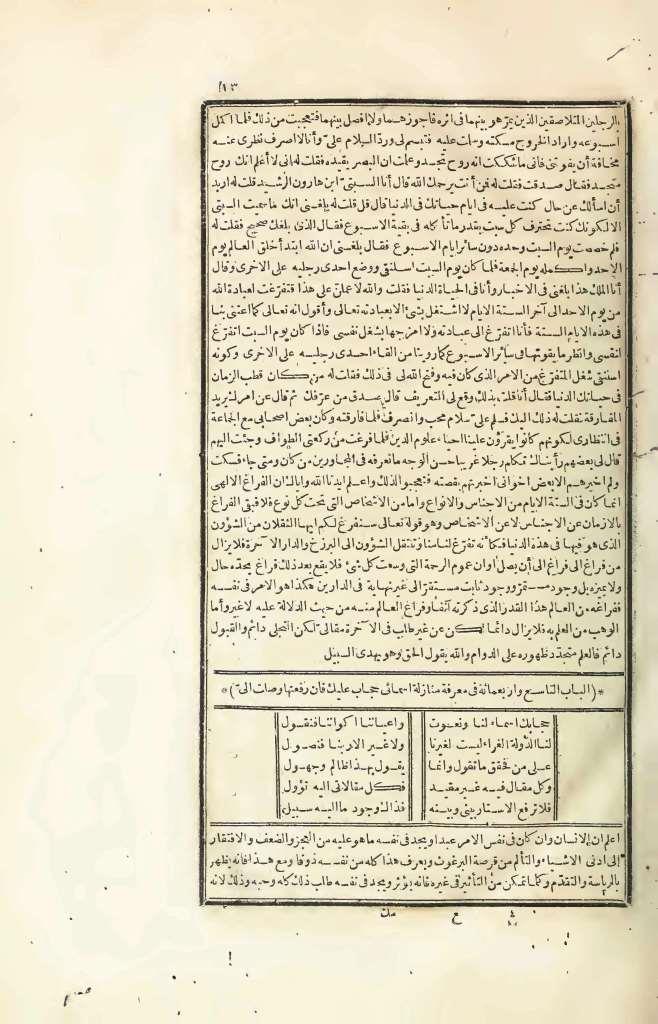 ١٣
بالرجلين المتلاصقين الذين يمرّ هو بينهما فى اثره فاجوزهما ولا افصل بينهما فتعجبت من ذلك فلما أكمل
أسبوعه واراد الخروج مسكته وسلمت عليه فتبسم لى وردّ السلام علىّ وأنا لا اصرف نظرى عنه
مخافة أن يفوتنى فانى ما شككت انه روح تجسد وعلمت ان البصر يقيده فقلت له انى لا أعلم انك روح
متجسد فقال صدقت فقلت له فمن أنت يرحمك الله قال أنا السبتى ابن هارون الرشيد قلت له اريد
أن اسألك عن حال كنت عليه فى ايام حياتك فى الدنيا قال قل قلت له بلغنى انك ما سميت السبتى
الا لكونك كنت تحترف كل سبت بقدر ما تأكله فى بقية الاسبوع فقال الذى بلغك صحيح فقلت له
فلم خصصت يوم السبت وحده دون سائر ايام الاسبوع فقال بلغنى ان الله ابتدأ خلق العالم يوم
الاحد وأكمله يوم الجمعة فلما كان يوم السبت استلقى ووضع احدى رجليه على الاخرى وقال
أنا الملك هذا بلغنى فى الاخبار وأنا فى الحياة الدنيا فقلت والله لا عملن على هذا فتفرّغت لعبادة الله
من يوم الاحد الى آخر الستة الايام لا اشتغل بشئ الا بعبادته تعالى وأقول انه تعالى كما اعتنى بنا
فى هذه الايام الستة فأنا اتفرّغ الى عبادته ولا امزجها بشغل نفسى فاذا كان يوم السبت اتفرّغ
لنفسى وانظر ما يقوتها فى سائر الاسبوع كما روينا من القاء احدى رجليه على الاخرى وكونه
استلقى شغل المتفرّغ من الامر الذى كان فيه وفتح الله لى فى ذلك فقلت له من كان قطب الزمان
فى حياتك الدنيا فقال أنا قلت بذلك وقع لى التعريف قال صدق من عرّفك ثم قال عن امرك يريد
المفارقة فقلت له ذلك اليك فسلم علىّ سلام محب وانصرف فلما فارقته وكان بعض اصحابى مع الجماعة
فى انتظارى لكونهم كانوا يقرؤن علينا احياء علوم الدين فلما فرغت من ركعتى الطواف وجئت اليهم
قال لى بعضهم رأيناك تكلم رجلا غريبا حسن الوجه ما نعرفه فى المجاورين من كان ومتى جاء فسكت
ولم اخبرهم الا بعض اخوانى اخبرتهم بقصته فتعجبوا لذلك واعلم ايدنا الله واياك ان الفراغ الالهى
انما كان فى الستة الايام من الاجناس والانواع واما من الاشخاص التى تحت كل نوع فلا فبقى الفراغ
بالازمان عن الاجناس لا عن الاشخاص وهو قوله تعالى سنفرغ لكم ايها الثقلان من الشؤون
الذى هو فيها فى هذه الدنيا فكأنه تفرّغ لنا منا وتنتقل الشؤون الى البرزخ والدار الآخرة فلا يزال
من فراغ الى فراغ الى أن يصل اوان عموم الرحمة التى وسعت كل شئ فلا يقع بعد ذلك فراغ يحدّه حال
ولا يميزه بل وجود مستمرّ ووجود ثابت مستقرّ الى غير نهاية فى الدارين هكذا هو الامر فى نفسه
ففراغه من العالم هذا القدر الذى ذكرته آنفا وفراغ العالم منه من حيث الدلالة عليه لا غير وأما
الوهب من العلم به فلا يزال دائما لكن عن غير طلب فى الآخرة مقالى لكن التجلى دائم والقبول
دائم فالعلم متجدّد ظهوره على الدوام والله يقول الحق وهو يهدى السبيل
* (الباب التاسع واربعمائة فى معرفة منازلة اسمائى حجاب عليك فان رفعتها وصلت الىّ) *
حجابك اسماء لنا ونعوت واعياننا اكواننا فنقول
لنا الدولة الغراء ليست لغيرنا ولا غير الا ربنا فنصول
على من فحقق ما تقول وانما يقول بهذا ظالم وجهول
وكل مقال فيه غير مقيد فكل مقالاتى اليه تؤول
فلا ترفع الاستار بينى وبينه فذاك وجود ما اليه سبيل
اعلم ان الانسان وان كان فى نفس الامر عبدا ويجد فى نفسه ما هو عليه من العجز والضعف والافتقار
الى ادنى الاشياء والتألم من قرصة البرغوث ويعرف هذا كله من نفسه ذوقا ومع هذا فانه يظهر
بالرياسة والتقدّم وكلما تمكن من التأثير فى غيره فانه يؤثر ويجد فى نفسه طلب ذلك كله وحبه وذلك لانه
ع
مك